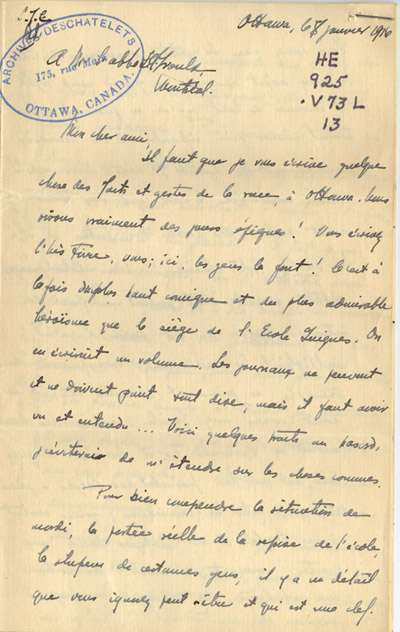 S.J.C
ARCHIVES DESCHATELETS
175, rue Main
OTTAWA, CANADA.
Ottawa, 6 janvier 1916
A M. l'abbé Groulx,
Montréal.
HE
925
.V73L
13
Mon cher ami,
Il faut que je vous écrive quelque
chose des faits et gestes de la race, à Ottawa. Nous
vivons vraiment des jours épiques! Vous écrivez
l'histoire, vous; ici, les gens la font! C'est à
la fois du plus haut comique et du plus admirable
héroïsme que le siège de l'Ecole Guigues. On
en écrirait un volume. Les journaux ne peuvent
et ne doivent point tout dire, mais il faut avoir
vu et entendu ... Voici quelques traits au hasard,
j'éviterai de m'étendre sur les choses connues.
Pour bien comprendre la situation de
mardi, la portée réelle de la reprise de l'école
la stupeur de certaines gens, il y a un détail
que vous ignorez peut-être et qui est une clef.